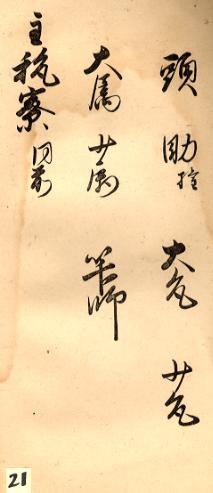 頭 助権 大允 少允
大属 少属 算師
主税寮 同前
21